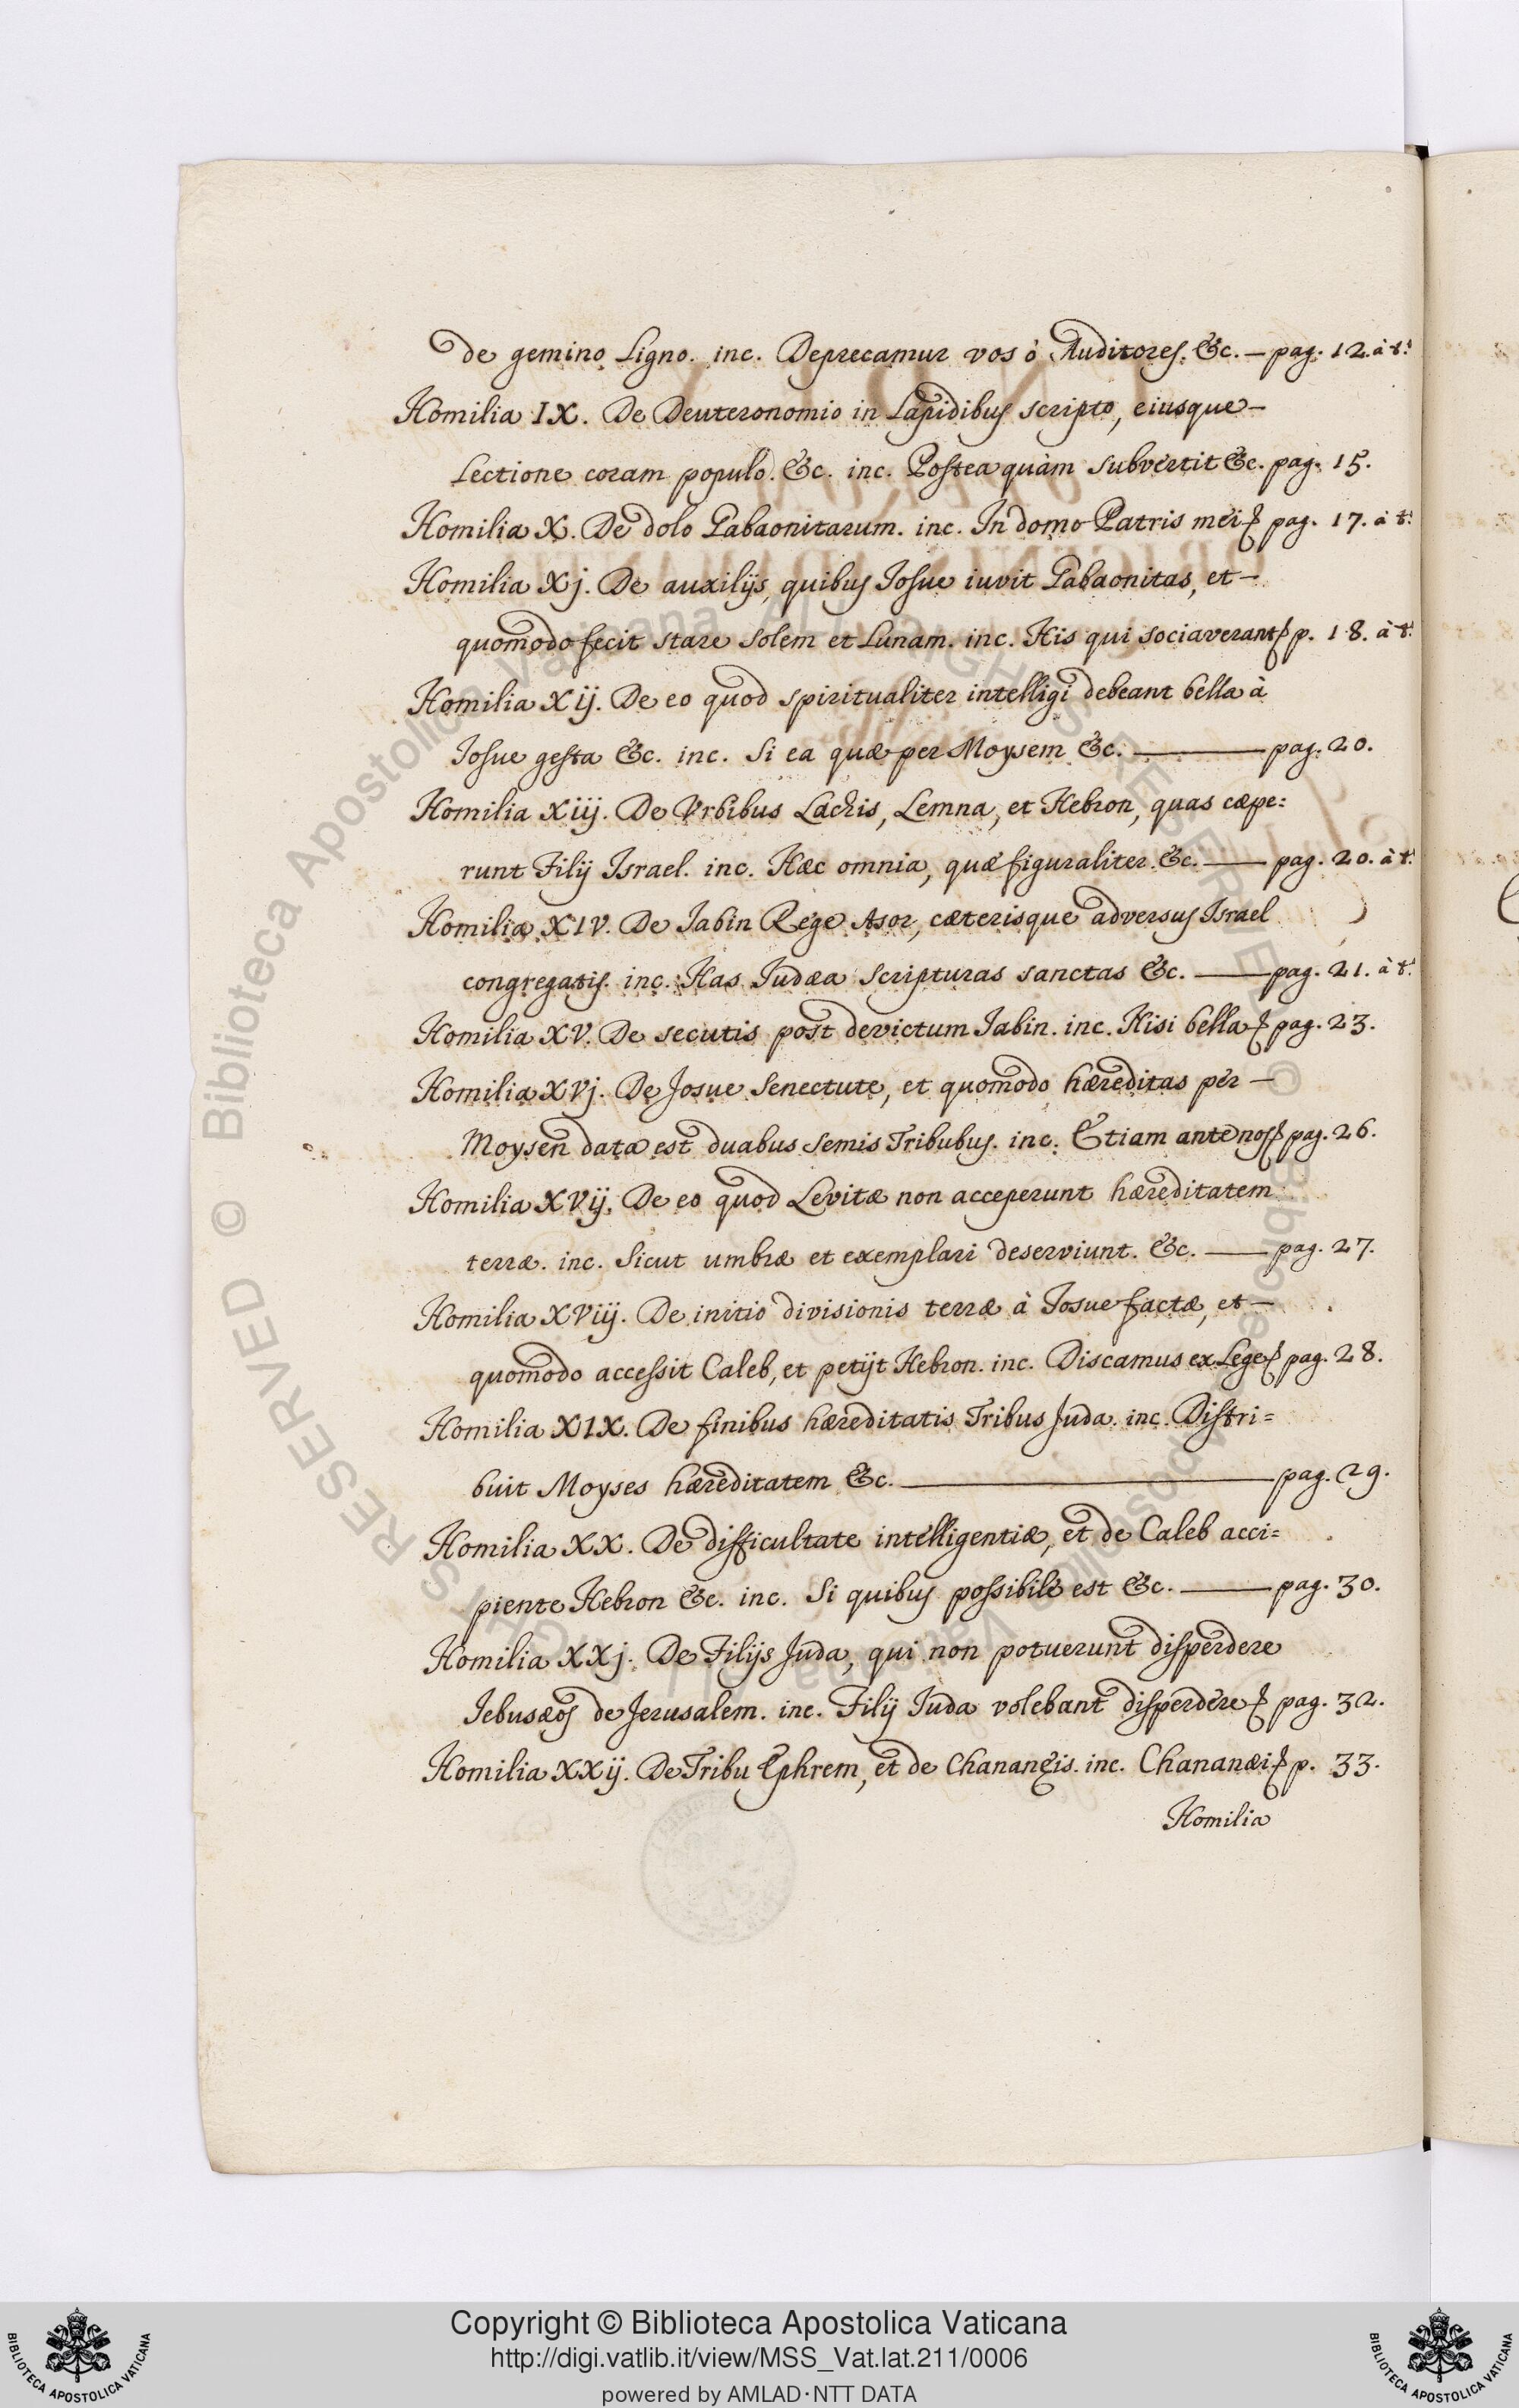 de gemino Ligno. inc. Deprecamur vos ò Auditores. &c. — pag. 12. à t.
Homilia IX. De Deuteronomio in Lapidibus scripto, eiusque —
Lectione coram populo. &c. inc. Postea quàm subvertit &c. pag. 15.
Homilia X. De dolo Gabaonitarum. inc. In domo Patris mei pag. 17. à t.
Homilia Xj. De auxilijs, quibus Josue iuvit Gabaonitas, et —
quomodo fecit stare Solem et Lunam. inc. His qui sociaverant p. 18. à t.
Homilia Xij. De eo quod spiritualiter intelligi debeant bella à
Josue gesta &c. inc. Si ea quæ per Moysem &c. — pag. 20.
Homilia Xiij. De Vrbibus Lachis, Lemna, et Hebron, quas cæpe=
runt Filij Israel. inc. Hæc omnia, quæ figuraliter. &c. — pag. 20. à t.
Homilia XIV. De Jabin Rege Asor, cæterisque adversus Israel
congregatis. inc. Has Judæa Scripturas sanctas &c. — pag. 21. à t.
Homilia XV. De secutis post devictum Jabin. inc. Nisi bella pag. 23.
Homilia XVj. De Josue Senectute, et quomodo hæreditas per —
Moysen data est duabus semis Tribubus. inc. Etiam ante nos pag. 26.
Homilia XVij. De eo quod Levitæ non acceperunt hæreditatem
terræ. inc. Sicut umbræ et exemplari deserviunt. &c. — pag. 27.
Homilia XViij. De initio divisionis terræ à Josue factæ, et —
quomodo accessit Caleb, et petijt Hebron. inc. Discamus ex Lege pag. 28.
Homilia XIX. De finibus hæreditatis Tribus Juda. inc. Distri=
buit Moyses hæreditatem &c. — pag. 29.
Homilia XX. De difficultate intelligentiæ, et de Caleb acci=
piente Hebron &c. inc. Si quibus possibile est &c. — pag. 30.
Homilia XXj. De Filijs Juda, qui non potuerunt disperdere
Jebusæos de Jerusalem. inc. Filij Juda volebant disperdere pag. 32.
Homilia XXij. De Tribu Ephrem, et de Chananęis. inc. Chananæi p. 33.
Homilia
© Biblioteca Apostolica Vaticana ALL RIGHTS RESERVED
Copyright © Biblioteca Apostolica Vaticana
http://digi.vatlib.it/view/MSS_Vat.lat.211/0006
powered by AMLAD·NTT DATA
BIBLIOTECA APOSTOLICA VATICANA
BIBLIOTECA APOSTOLICA VATICANA